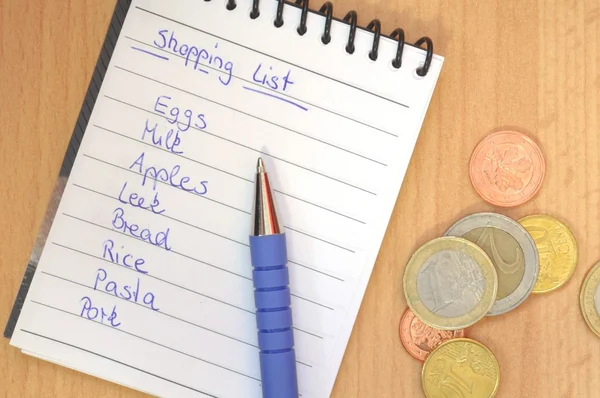 Shopping List
Eggs
Milk
Apples
Leek
Bread
Rice
Pasta
Pork
2